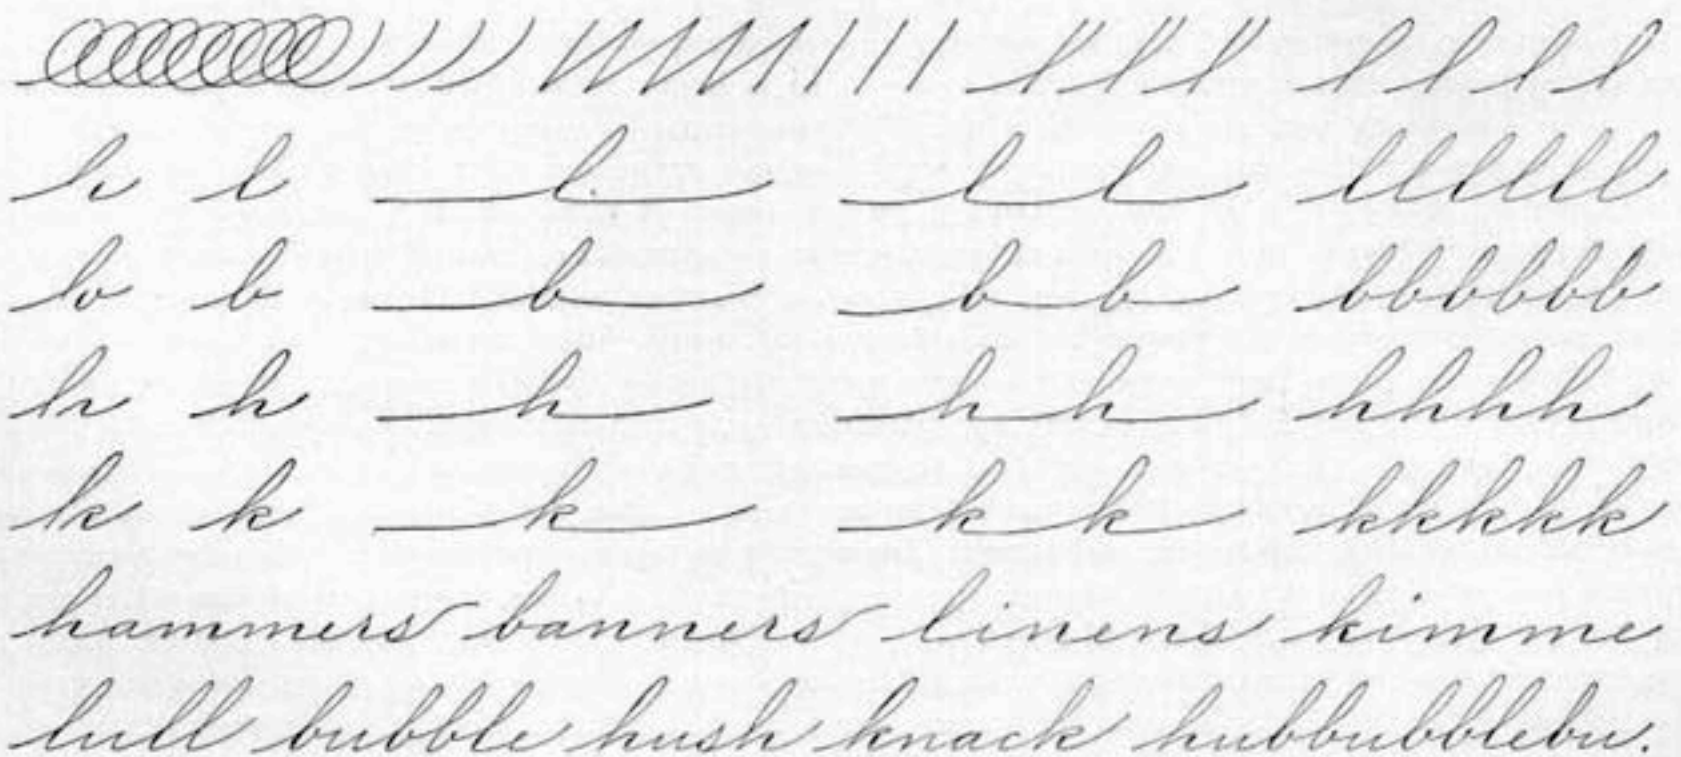 l l l l
l l l l l l l l l l l
b b b b b b b b b b b
h h h h h h h h h
k k k k k k k k k k
hammers banners linens kimme
lull bubble hush knack hubbubblebu.